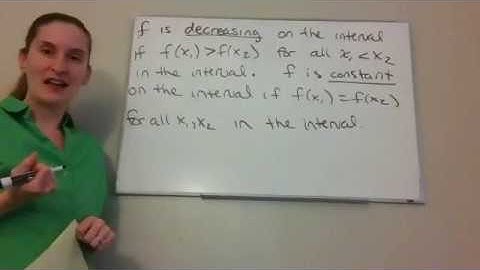 f is decreasing on the interval
if f(x₁)>f(x₂) for all x₁<x₂
in the interval. f is constant
on the interval if f(x₁)=f(x₂)
for all x₁,x₂ in the interval.